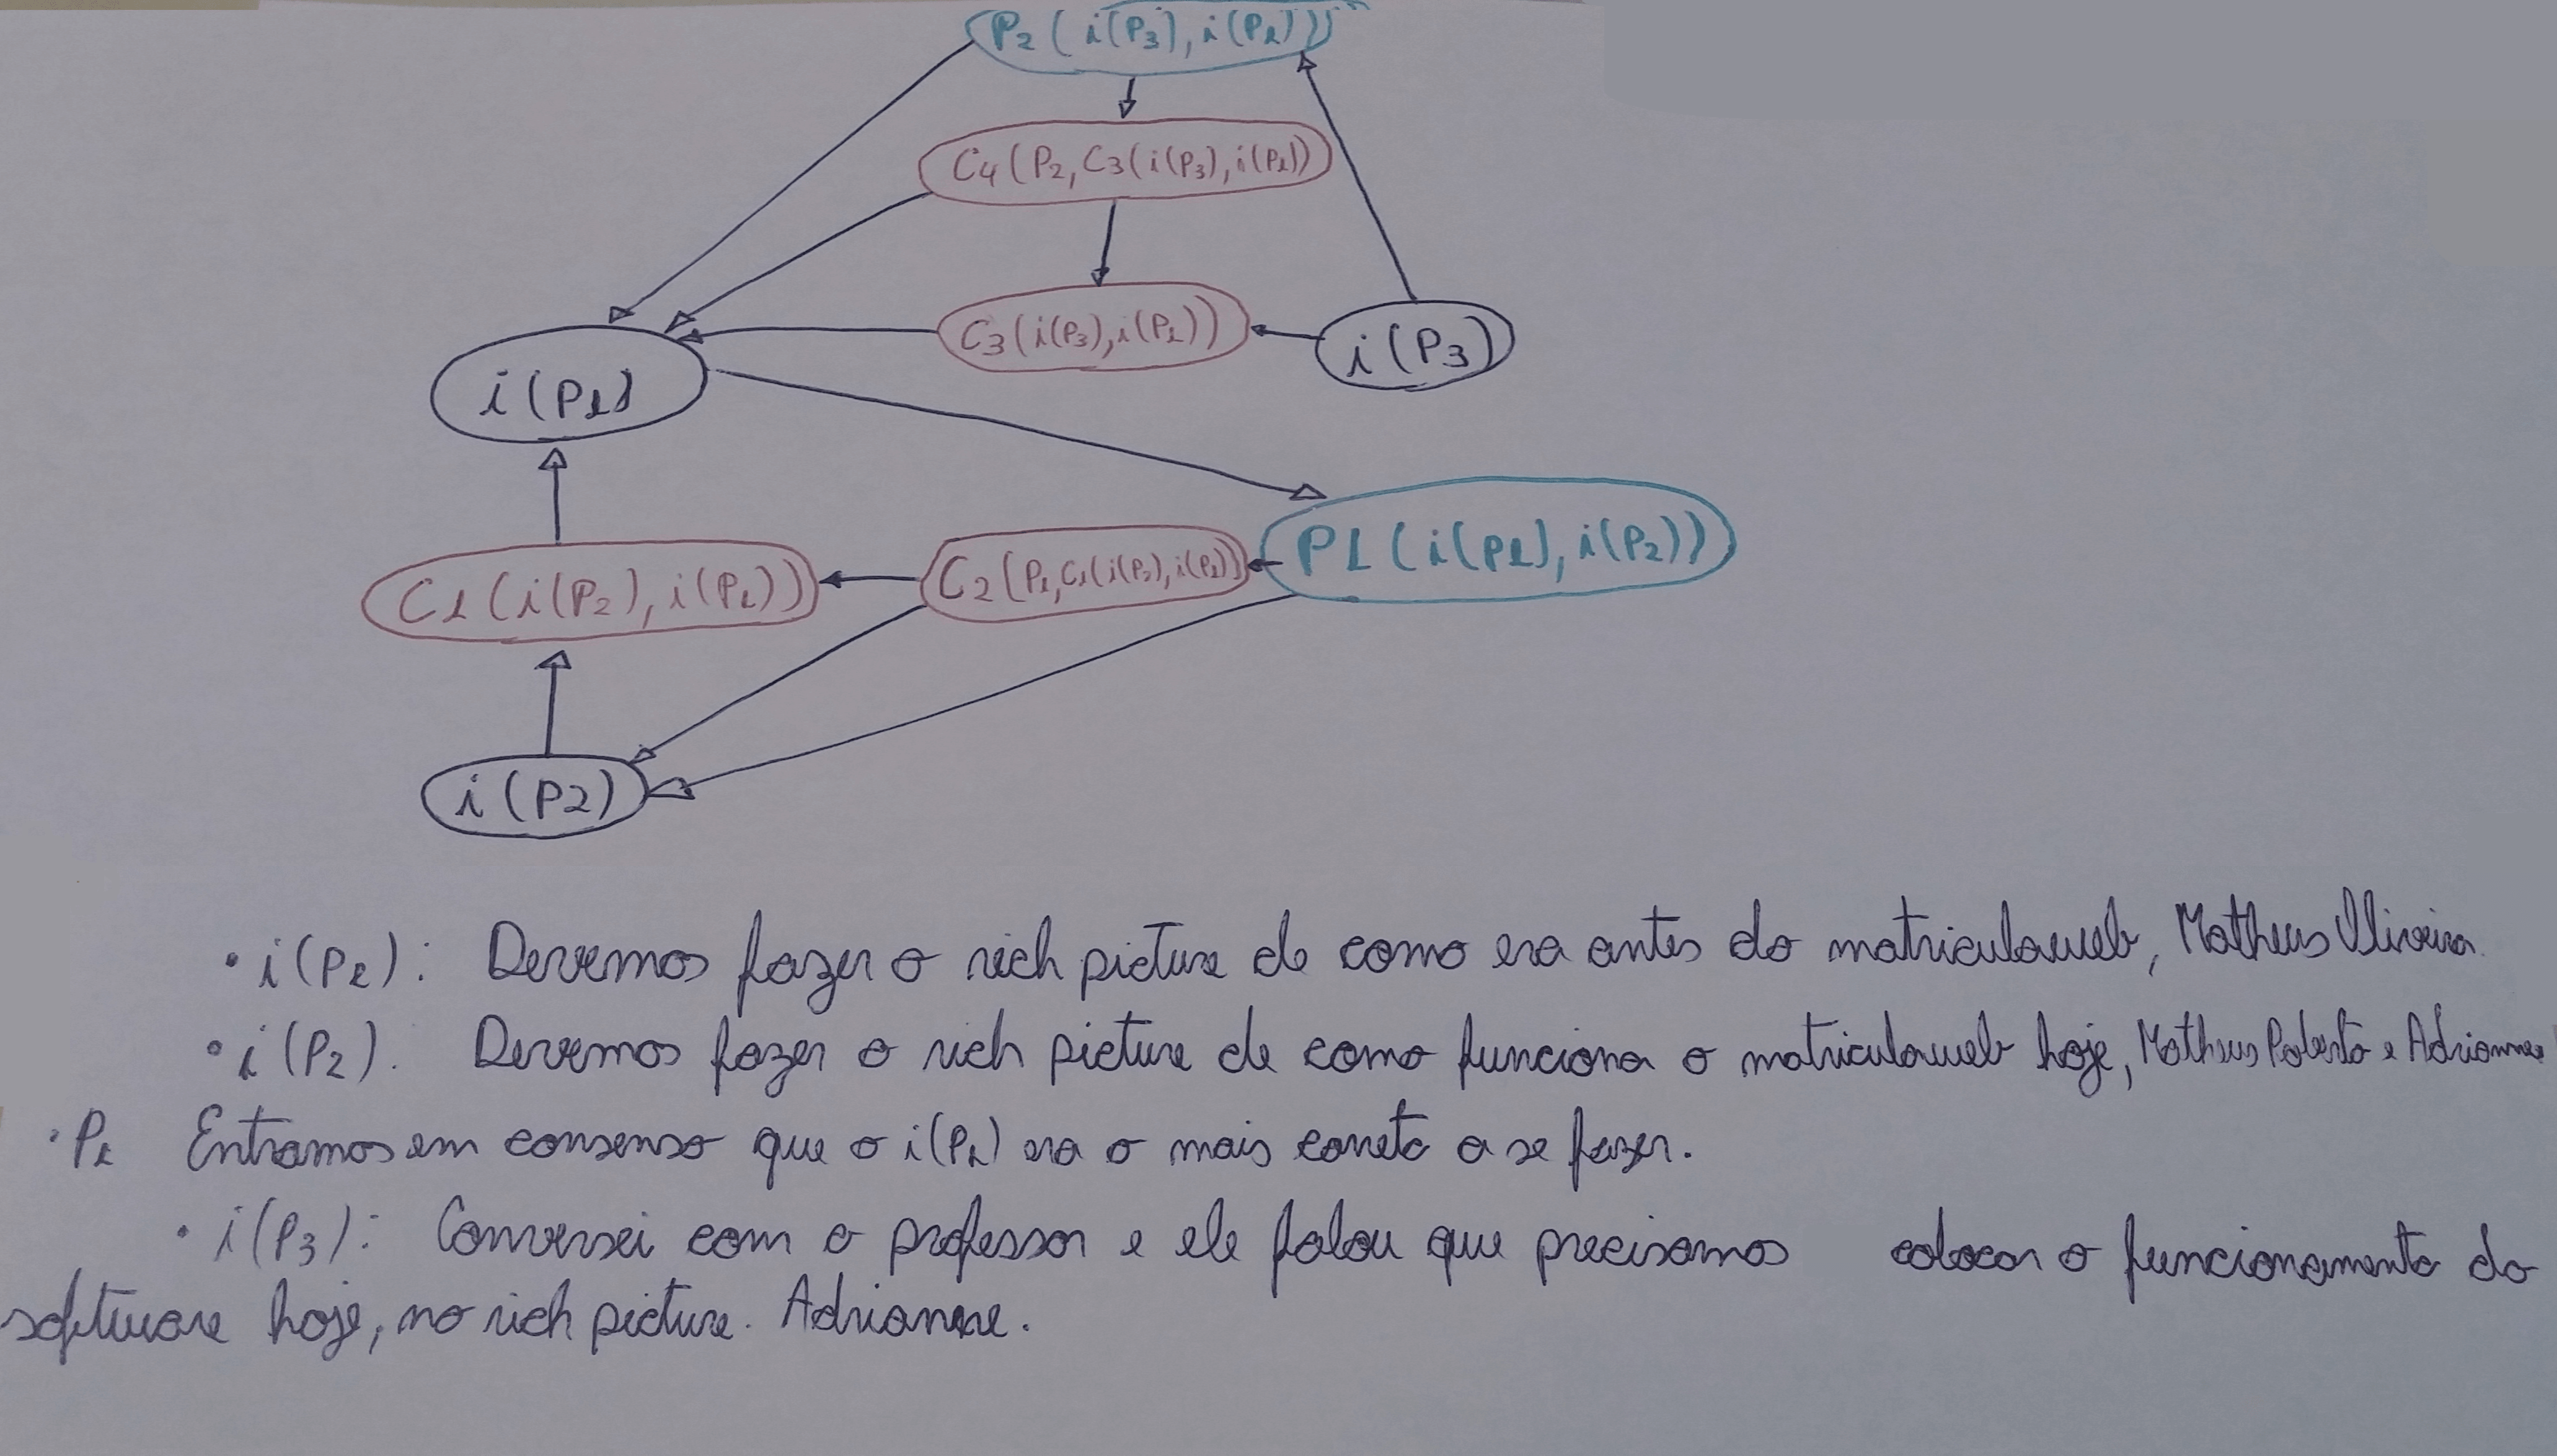 P2 ( i(P3), i(P1) )
C4 ( P2, C3 ( i(P3), i(P1) )
C3 ( i(P3), i(P1) )
i (P3)
i (P1)
P1 ( i(P1), i(P2) )
C2 ( P1, C1 ( i(P2), i(P1) )
C1 ( i(P2), i(P1) )
i (P2)
• i (P1): Devemos fazer o rich picture de como era antes do matriculaweb, Matheus Oliveira.
• i (P2). Devemos fazer o rich picture de como funciona o matriculaweb hoje, Matheus Roberto e Adrianne
• P1 Entramos em consenso que o i(P1) era o mais correto a se fazer.
• i (P3): Conversei com o professor e ele falou que precisamos colocar o funcionamento do
software hoje, no rich picture. Adrianne.